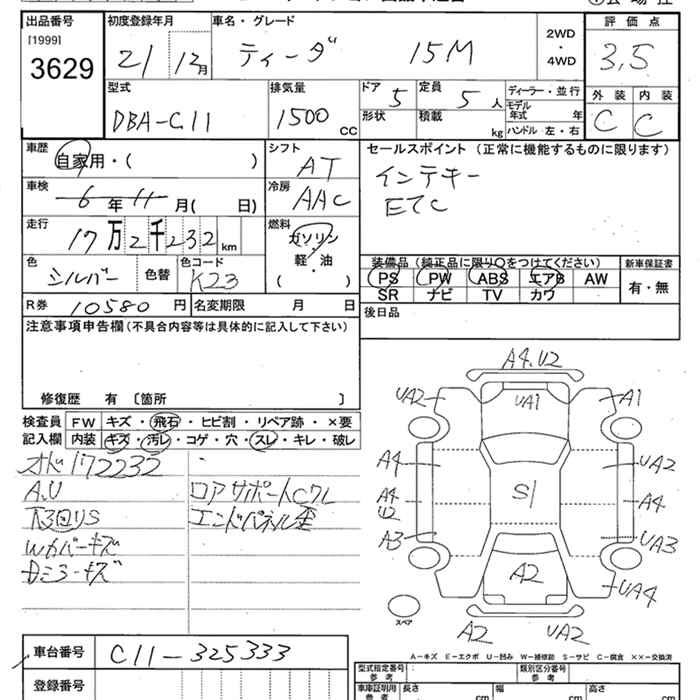 出品番号 初度登録年月 車名・グレード 2WD・4WD 評価点
[1999]
3629 21 12月 ティーダ 15M 3,5
型式 排気量 ドア 5 定員 5人 ディーラー・並行 外装 内装
DBA-C11 1500 CC 形状 積載 kg モデル年式 年 C C
ハンドル 左・右
車歴 自家用・( ) シフト AT セールスポイント (正常に機能するものに限ります)
車検 6年11月( 日) 冷房 AAC インテキー
ETC
走行 17万2千232km 燃料 ガソリン・軽・油 ( )
色 シルバー 色替 色コード K23
装備品 (純正品に限り○をつけてください) 新車保証書
PS PW ABS エアB AW 有・無
SR ナビ TV カワ
R券 10580円 名変期限 月 日 後日品
注意事項申告欄(不具合内容等は具体的に記入して下さい)
修復歴 有 〔箇所 〕
検査員記入欄 FW キズ・飛石・ヒビ割・リペア跡・×要
内装 キズ・汚レ・コゲ・穴・スレ・キレ・破レ
オド172232
A.U ロアサポートCワレ
下回りS エンドパネル歪
Wカバーキズ
Dミラーキズ
A4.U2
UA2 UA1 A1
A4 UA2
A4 U2 S1 A4
A3 UA3
A2 UA4
スペア A2 UA2
A-キズ E-エクボ U-凹み W-補修跡 S-サビ C-腐食 ××-交換済
車台番号 C11-325333
登録番号
型式指定番号 参考 類別区分番号 参考
車庫証明用 参考 長さ cm 幅 cm 高さ cm